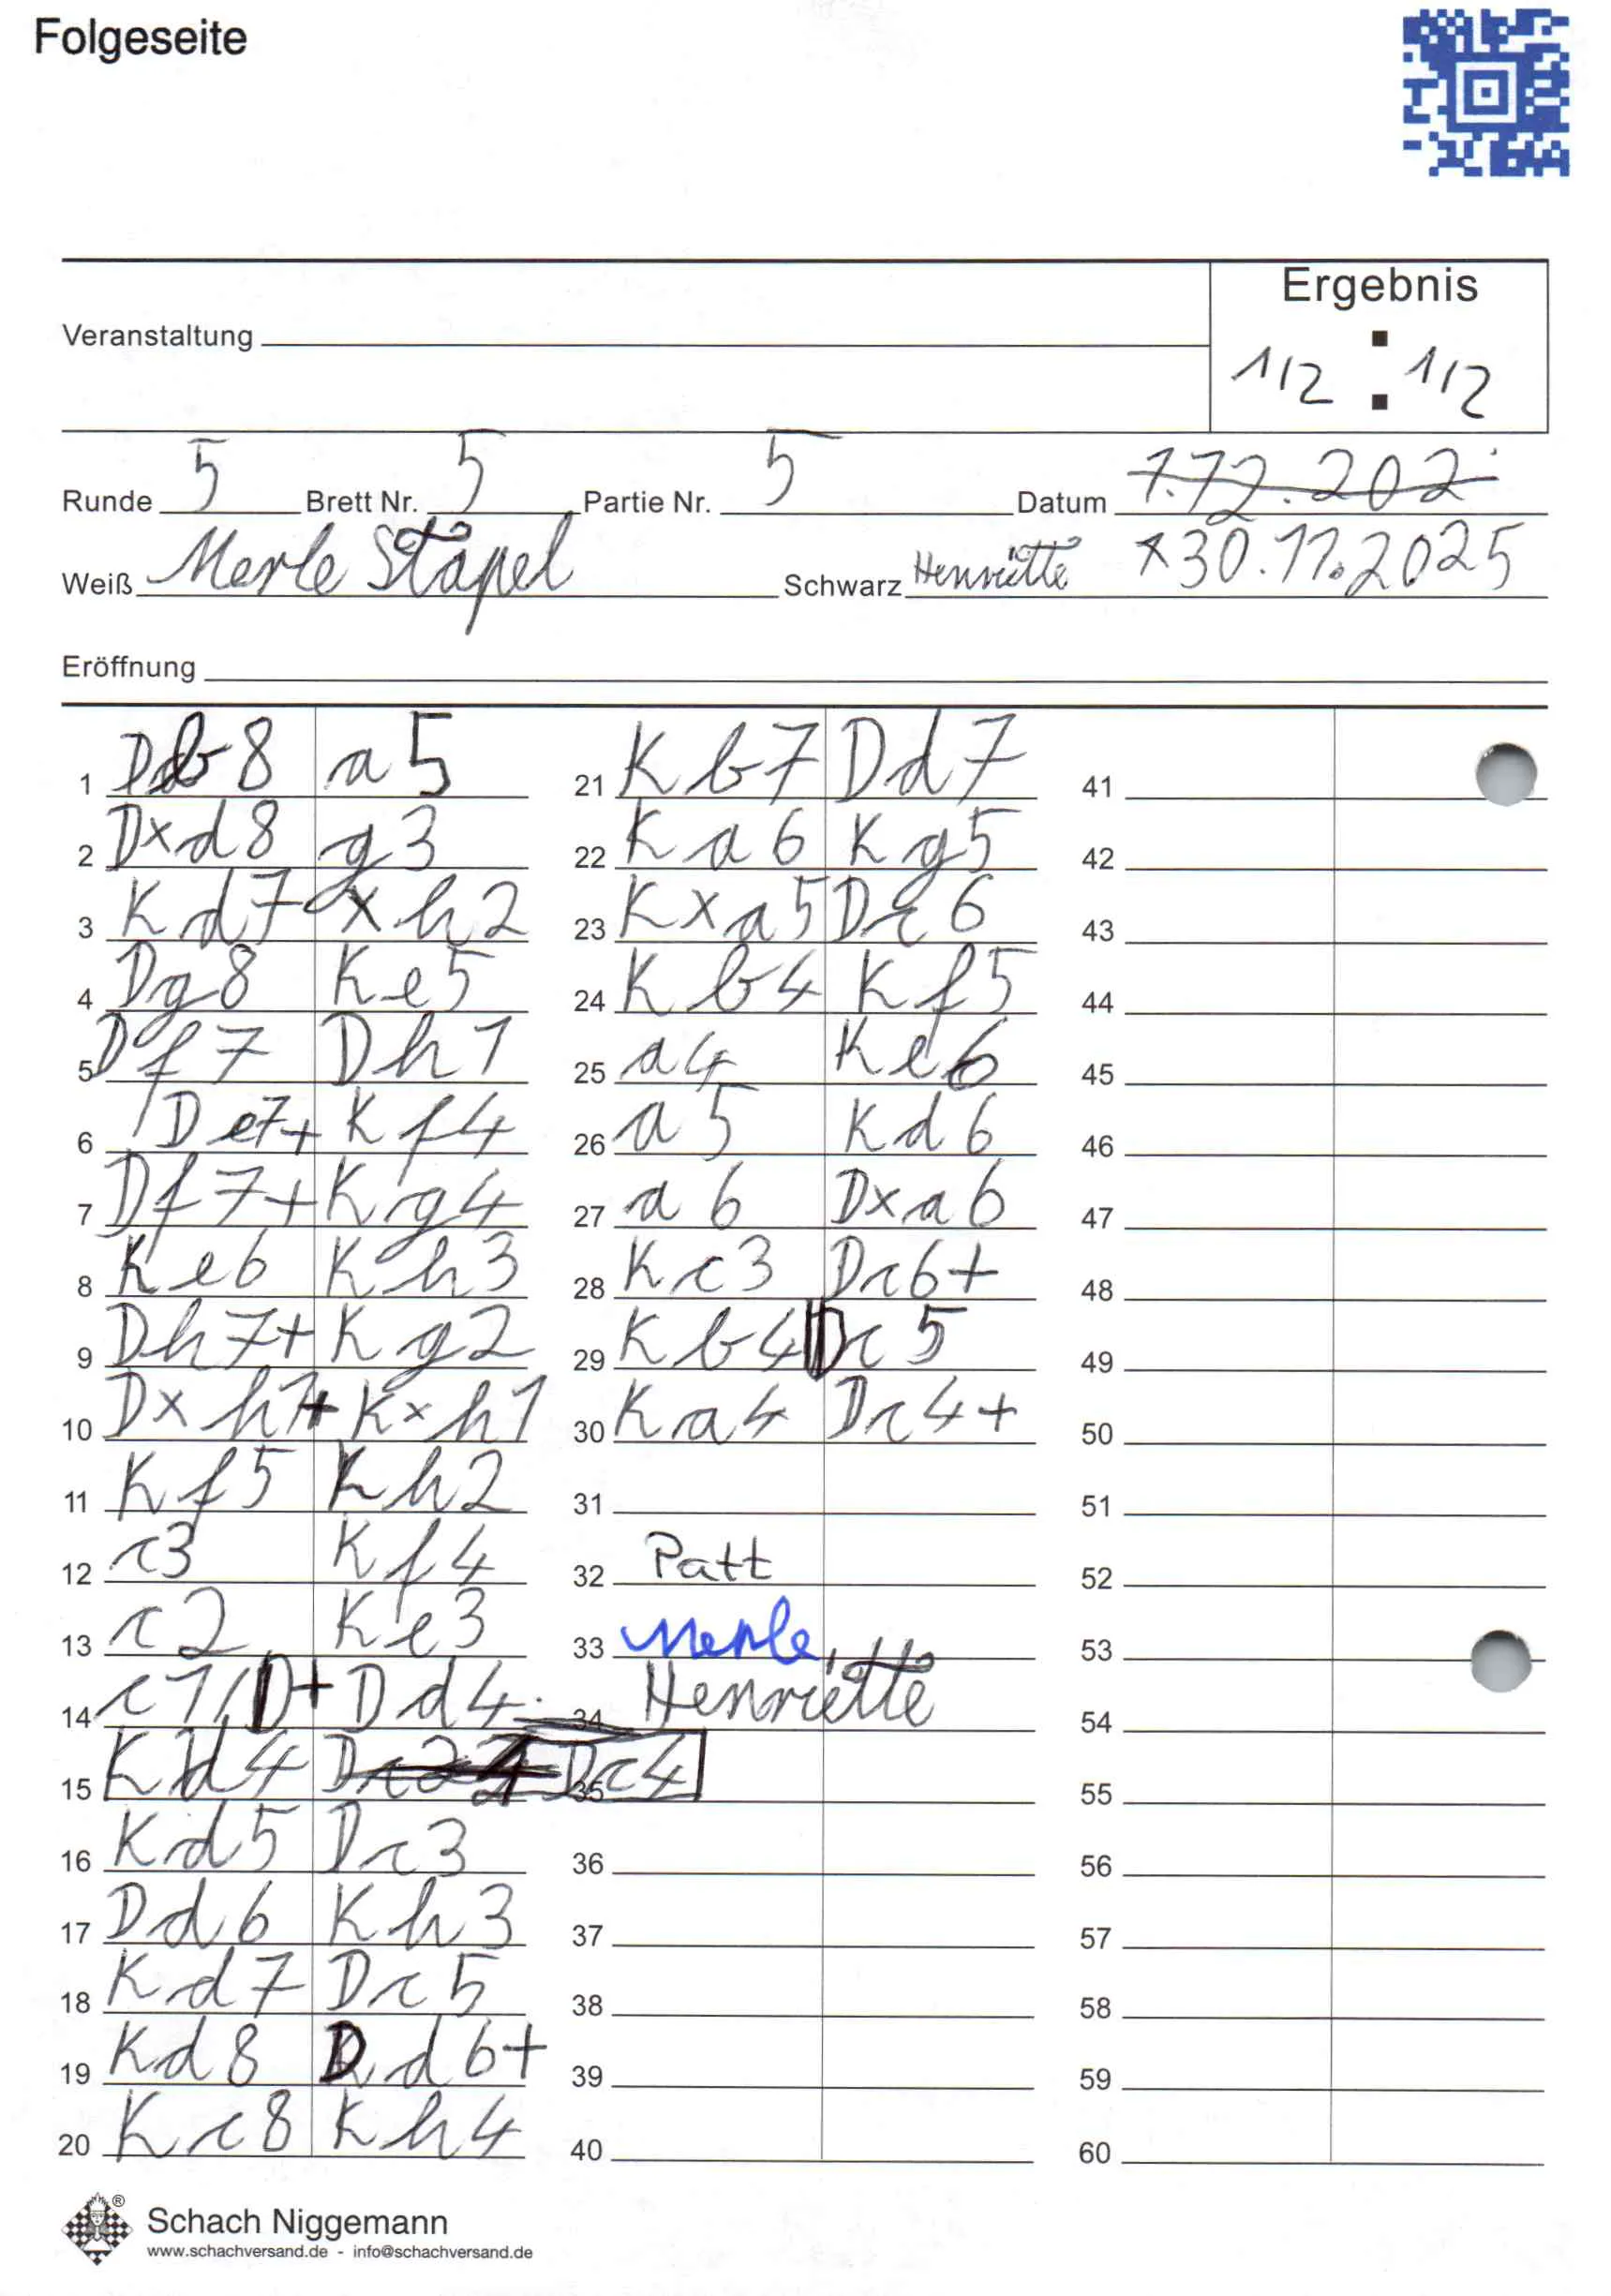 Folgeseite
Ergebnis
Veranstaltung
1/2 : 1/2
Runde 5 Brett Nr. 5 Partie Nr. 5 Datum 1.12.202
Weiß Merle Stapel Schwarz Henriette *30.11.2025
Eröffnung
1 Db8 a5
2 Dxd8 g3
3 Kd7 gxh2
4 Dg8 Ke5
5 Df7 Dh1
6 De7+ Kf4
7 Df7+ Kg4
8 Ke6 Kh3
9 Dh7+ Kg2
10 Dxh1+ Kxh1
11 Kf5 Kh2
12 c3 Kf4
13 c2 Ke3
14 c1/D+ Dd4
15 Kd4 Dc4
16 Kd5 Dc3
17 Dd6 Kh3
18 Kd7 Dc5
19 Kd8 Dd6+
20 Kc8 Kh4
21 Kb7 Dd7
22 Ka6 Kg5
23 Kxa5 Dc6
24 Kb4 Kf5
25 a4 Ke6
26 a5 Kd6
27 a6 Dxa6
28 Kc3 Dc6+
29 Kb4 Dc5
30 Ka4 Dc4+
31
32 Patt
33 Merle
34 Henriette
35
36
37
38
39
40
41
42
43
44
45
46
47
48
49
50
51
52
53
54
55
56
57
58
59
60
Schach Niggemann
www.schachversand.de - info@schachversand.de